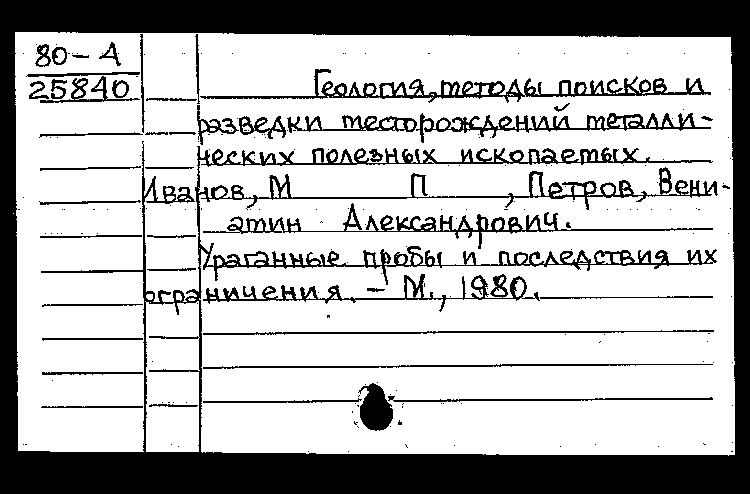 80-А
25840
Геология, методы поисков и
разведки месторождений металли-
ческих полезных ископаемых.
Иванов, М П , Петров, Вени-
амин Александрович.
Ураганные пробы и последствия их
ограничения. - М., 1980.